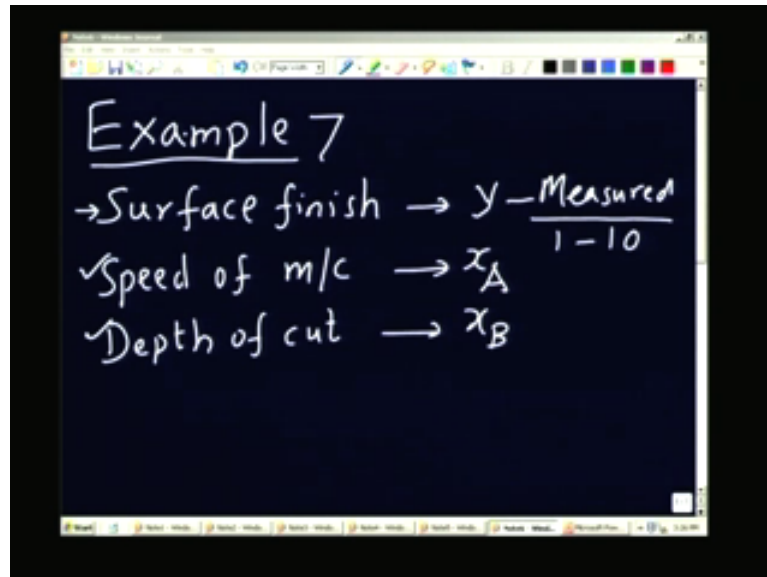 Example 7
→Surface finish → y – Measured
1 – 10
✓Speed of m/c → x_A
✓Depth of cut → x_B